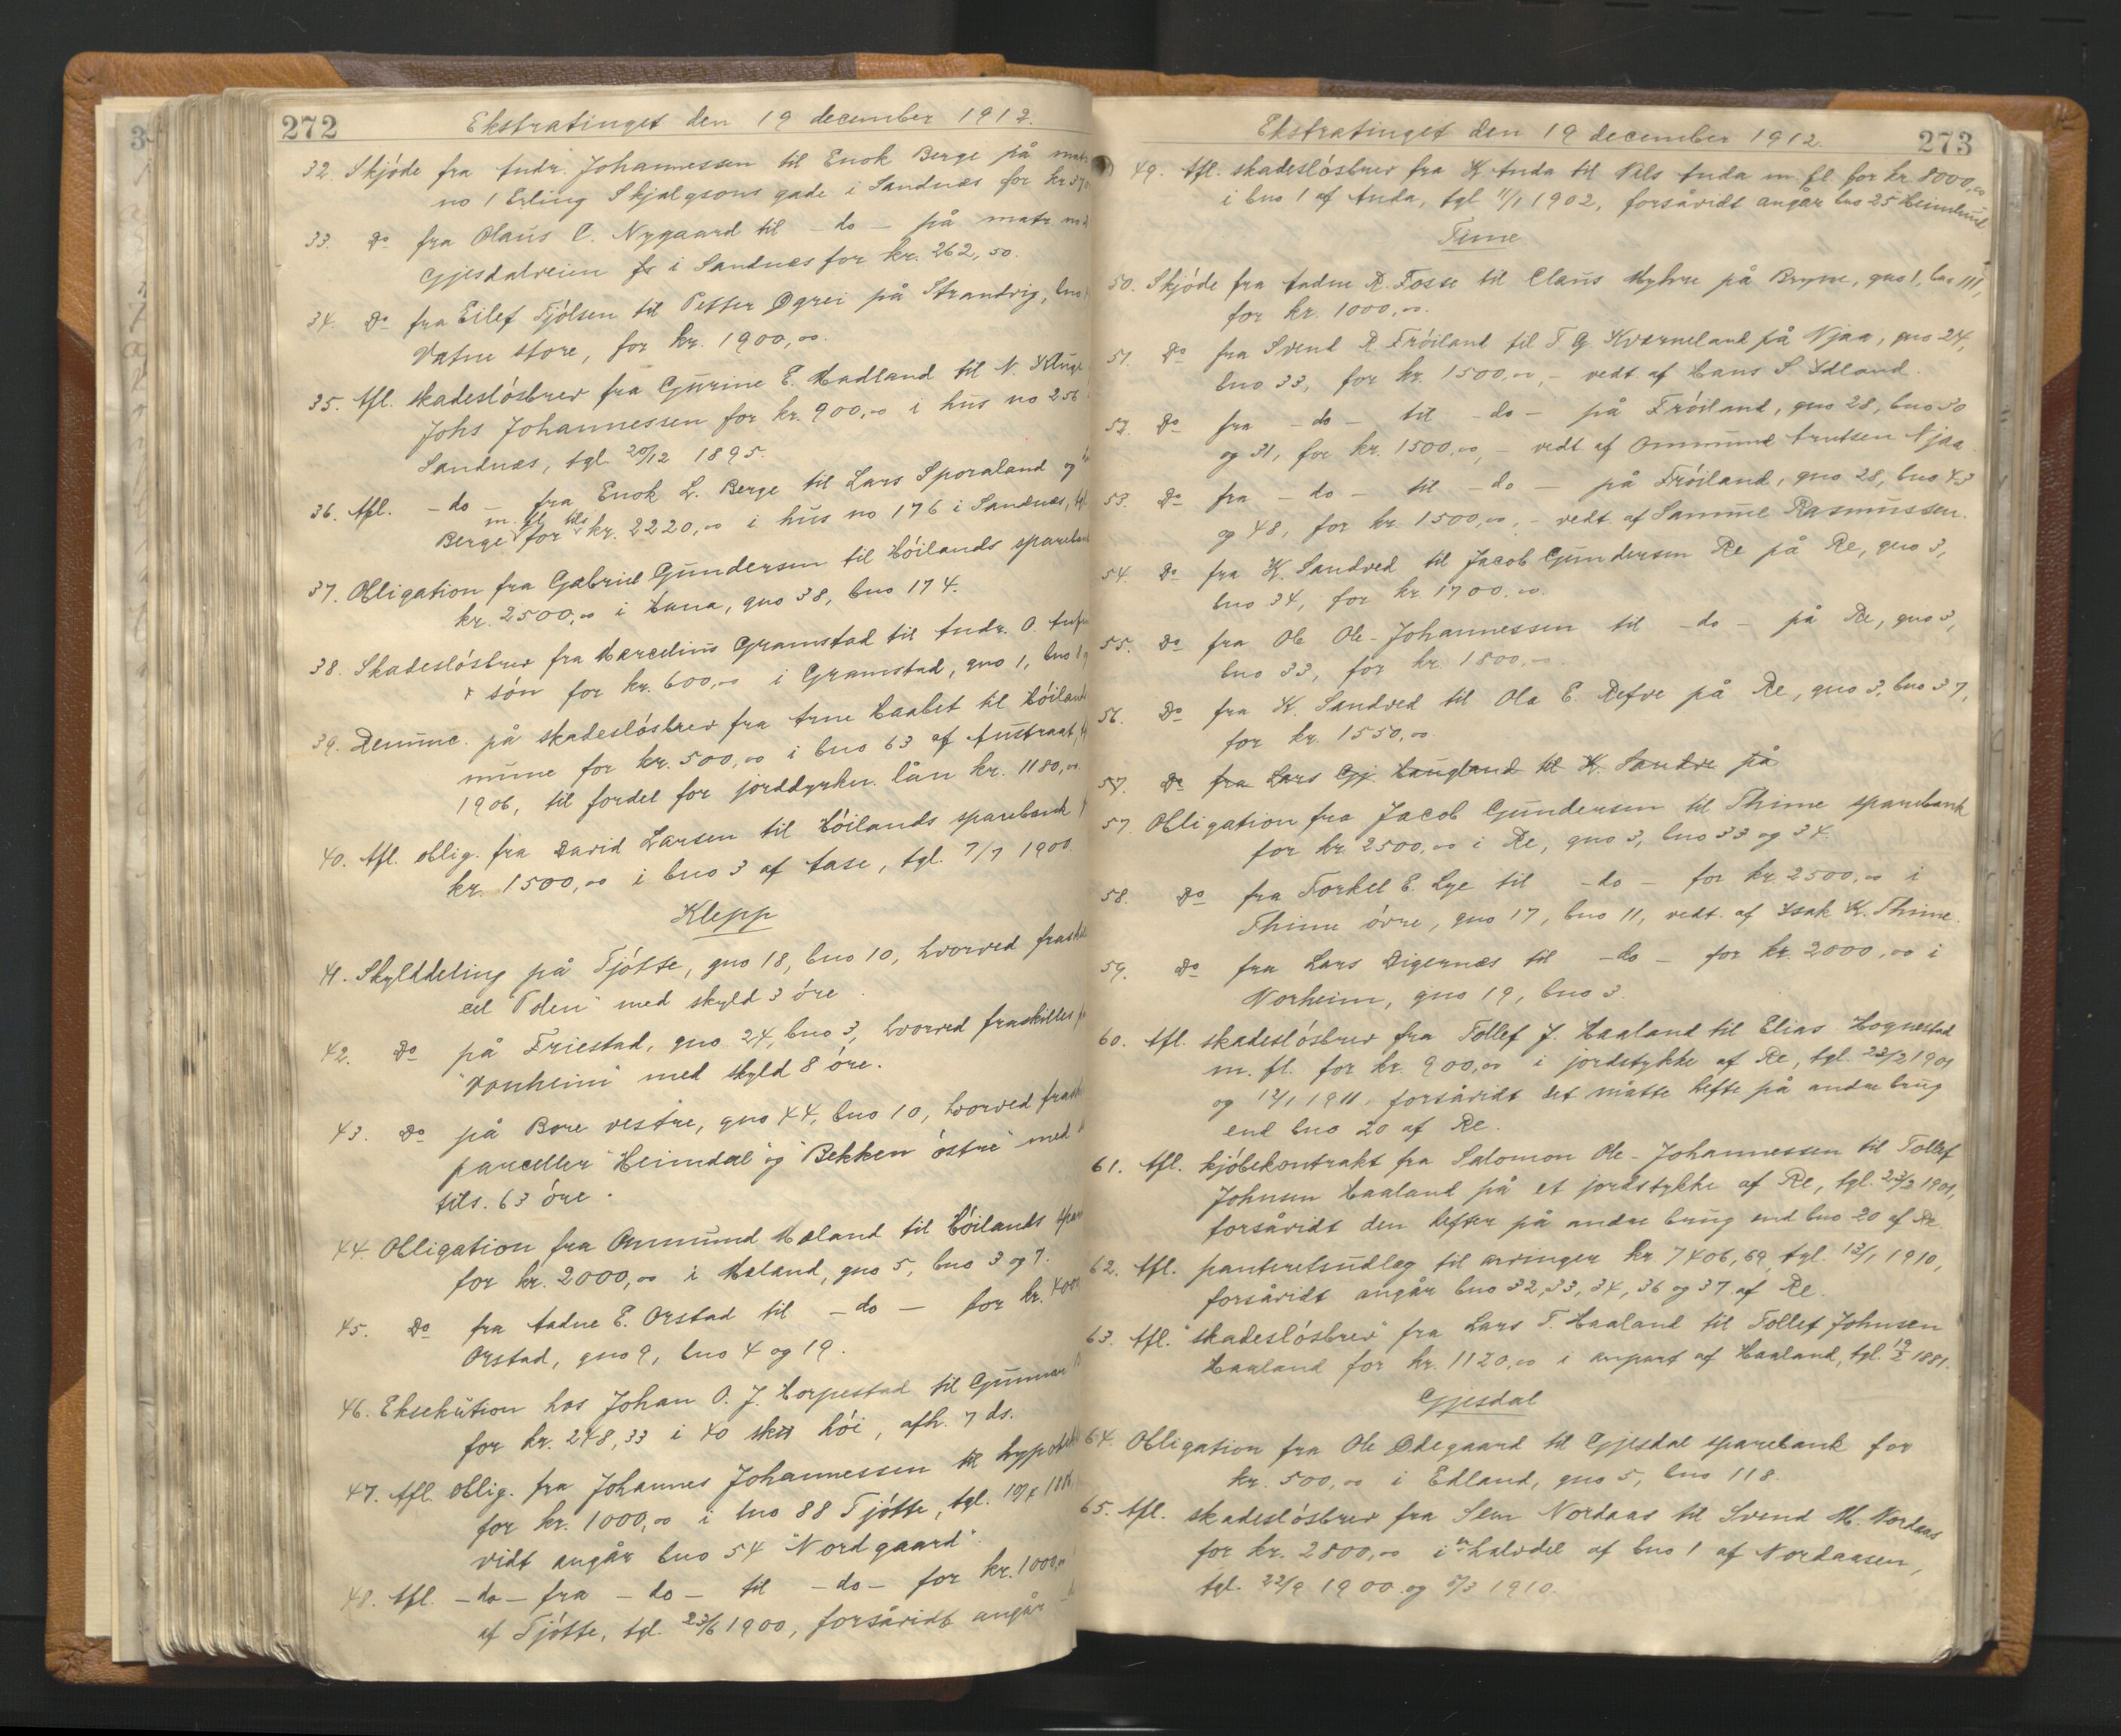 272
Ekstratinget den 19 december 1912.
32. Skjøde fra Andr. Johannessen til Enok Berge på matr
no 1 Erling Skjalgsons gade i Sandnes for kr
33. Do fra Olaus C. Nygaard til - do - på matr. no
Gjesdalveien i Sandnes for kr. 262,50.
34. Do fra Eilef Tjølsen til Petter Øgrei på Strandvig, bno
Vatne store, for kr. 1900,00.
35. Afl. skadesløsbrev fra Gurine E. Madland til N. Kluge
Johs Johannessen for kr. 900,00 i hus no 256
Sandnes, tgl. 20/12 1895.
36. Afl. - do - fra Enok L. Berge til Lars Sporaland og
m. fl. tils
Berge for kr. 2220,00 i hus no 176 i Sandnes,
37. Obligation fra Gabriel Gundersen til Høilands spareban
kr. 2500,00 i Hana, gno 38, bno 174.
38. Skadesløsbrev fra Marcelius Gramstad til Andr. O.
søn for kr. 600,00 i Gramstad, gno 1, bno
39. Renunc. på skadesløsbrev fra Arne Haabet til Høiland
mune for kr. 500,00 i bno 63 af Austraat,
1906, til fordel for jorddyrkn. lån kr. 1180,00.
40. Afl. oblig. fra David Larsen til Høilands sparebank
kr. 1500,00 i bno 3 af Aase, tgl. 7/7 1900.
Klepp
41. Skylddeling på Tjøtte, gno 18, bno 10, hvorved frask
cel "Toden" med skyld 3 øre.
42. Do på Friestad, gno 24, bno 3, hvorved fraskilles
"Vonheim" med skyld 8 øre.
43. Do på Bore vestre, gno 44, bno 10, hvorved frask
parceller "Heimdal" og "Bekken østre" med
tils. 63 øre.
44. Obligation fra Ommund Haland til Høilands spar
for kr. 2000,00 i Haland, gno 5, bno 3 og 7.
45. Do fra Aadne E. Orstad til - do - for kr. 400
Orstad, gno 9, bno 4 og 19.
46. Eksekution hos Johan O. J. Horpestad til Gunnar
for kr. 248,33 i 40 høi, afh. 7 ds.
47. Afl. oblig. fra Johannes Johannessen til hypothek
for kr. 1000,00 i bno 88 Tjøtte, tgl.
vidt angår bno 54 "Nordgaard".
48. Afl. - do - fra - do - til - do - for kr. 1000,00
af Tjøtte, tgl. 23/6 1900, forsåvidt angår
Ekstratinget den 19 december 1912.
273
49. Afl. skadesløsbrev fra K. Anda til Nils Anda m. fl for kr. 8000,00
i bno 1 af Anda, tgl 11/1 1902, forsåvidt angår bno 25 Heimlund
Time
50. Skjøde fra Aadne R. Fosse til Claus Myhre på Bryne, gno 1, bno 111,
for kr. 1000,00.
51. Do fra Svend R. Frøiland til T G. Kverneland på Njaa, gno 24,
bno 33, for kr. 1500,00, - vedt. af Hans S. Ydland.
52. Do fra - do - til - do - på Frøiland, gno 28, bno 30
og 31, for kr. 1500,00, - vedt af Ommund Knutsen Njaa
53. Do fra - do - til - do - på Frøiland, gno 28, bno 43
og 48, for kr. 1500,00, - vedt. af Samuel Rasmussen.
54. Do fra K. Sandved til Jacob Gundersen Re på Re, gno 3,
bno 34, for kr. 1700,00.
55. Do fra Ob Ole-Johannessen til - do - på Re, gno 3,
bno 33, for kr. 1800,00.
56. Do fra K. Sandved til Ola E. Refve på Re, gno 3, bno 37,
for kr. 1550,00.
57. Do fra Lars Gj. Haugland til K. Sandve på
57. Obligation fra Jacob Gundersen til Thime sparebank
for kr 2500,00 i Re, gno 3, bno 33 og 34.
58. Do fra Torkel E. Lye til - do - for kr. 2500,00 i
Thime øvre, gno 17, bno 11, vedt. af Isak K. Thime.
59. Do fra Lars Digernæs til - do - for kr. 2000,00 i
Norheim, gno 19, bno 3.
60. Afl. skadesløsbrev fra Tollef J. Haaland til Elias Hognestad
m. fl. for kr. 900,00 i jordstykke af Re, tgl. 23/3 1901
og 12/1 1911, forsåvidt det måtte hefte på andre brug
end bno 20 af Re.
61. Afl. kjøbekontrakt fra Salomon Ole-Johannessen til Tollef
Johnsen Haaland på et jordstykke af Re, tgl. 23/3 1901,
forsåvidt den hefter på andre brug end bno 20 af Re.
62. Afl. panteretsudlæg til arvinger kr. 7406,69, tgl. 12/1 1910,
forsåvidt angår bno 32, 33, 34, 36 og 37 af Re.
63. Afl. "skadesløsbrev" fra Lars T. Haaland til Tollef Johnsen
Haaland for kr. 1120,00 i anpart af Haaland, tgl. 1881.
Gjesdal
64. Obligation fra Ole Ødegaard til Gjesdal sparebank for
kr. 500,00 i Edland, gno 5, bno 118.
65. Afl. skadesløsbrev fra Sem Nordaas til Svend M. Nordaas
for kr. 2800,00 i en halvdel af bno 1 af Nordaasen,
tgl. 22/9 1900 og 5/3 1910.